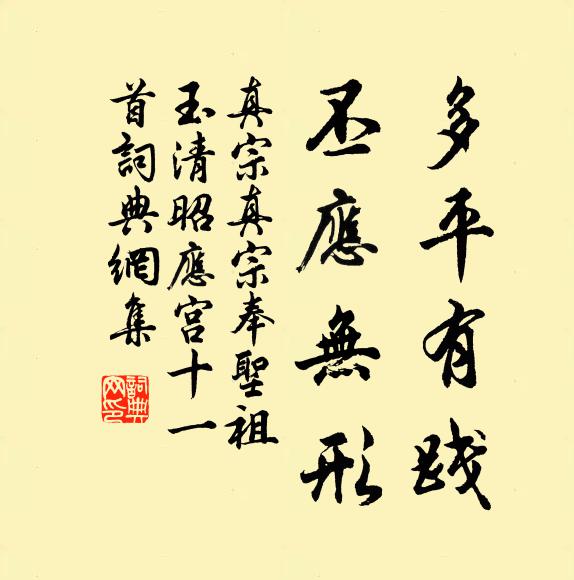 多平有践
丕應無形
真宗真宗奉聖祖
玉清昭應宮十一
首詞典網集
詞典網印